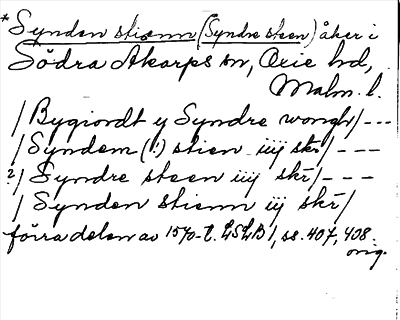 *Synden stienn (Syndre steen) åker i
Södra Åkarps sn, Oxie hd,
Malm. l.
/Bygiordt y Syndre wongh/---
/Syndem (!) stien iiij skr/---
?/ Syndre steen iiij skr/---
/ Synden stienn iij skr/
förra delen av 1570-t. LSLB 1, ss. 407, 408.
orig.